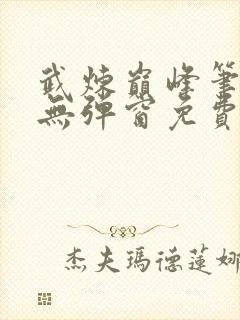 武煉巔峰筆
無彈窗免費
杰夫瑪德蓮娜